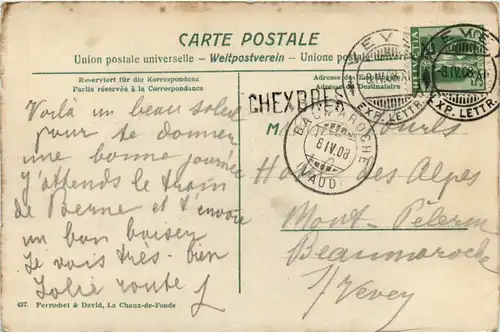 CARTE POSTALE
Union postale universelle. – Weltpostverein. – Unione postale
Reserviert für die Korrespondenz
Partie réservée à la Correspondance
Adresse des
Adresse du Destinataire
VEVEY
8.IV.08.XI
EXP. LETTR.
VEVEY
8.IV.08.XI
EXP. LETTR.
HELVETIA
CHEXBRES
BAUMAROCHE
8 IV.08
(VAUD)
Voilà un beau soleil
pour te donner
une bonne journée
J'attends le train
de Berne et t'envoie
un bon baiser
Je vais très bien
Jolie route
Hôtel des Alpes
Mont-Pélerin
Beaumaroche
s/Vevey
437. Perrochet & David, La Chaux-de-Fonds